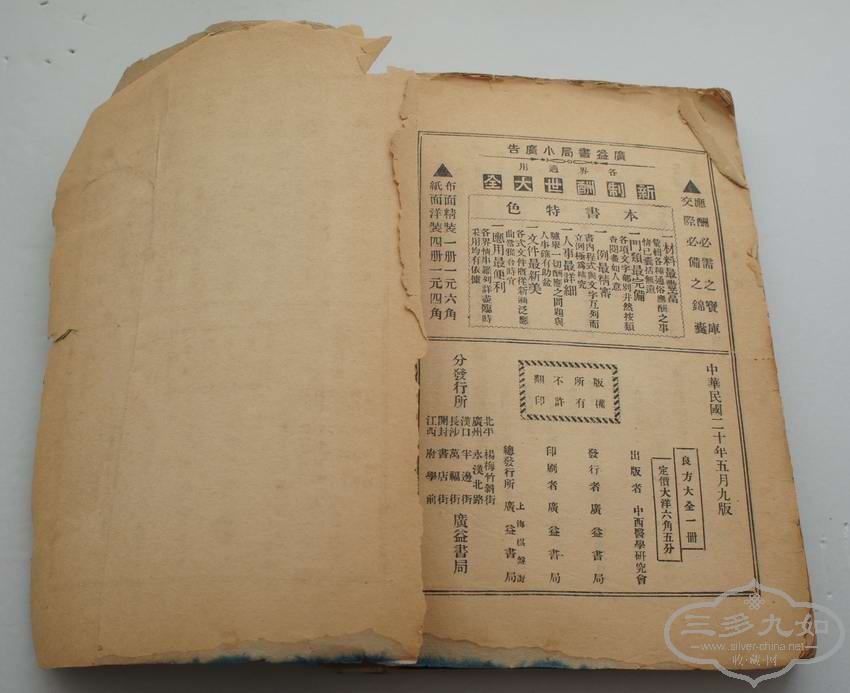 廣益書局小廣告
各界適用
新制酬世大全
▲應酬必需之寶庫
交際必備之錦囊
本書特色
一材料最豐富
彙輯各種通俗應酬之事
情已囊括無遺
一門類最完備
各項文字都別井然按類
查閱盡如人意
一例最精審
書內程式與文字互列而
立例極為精究
一人事最詳細
驢舉一切酬應之問題與
人事確有助益
一文件最新美
各式文件概從新涵泛應
曲當雅合時宜
一應用最便利
各界情事羅列詳盡臨時
采用均有依據
▲布面精裝一册一元六角
紙面洋裝四册一元四角
中華民國二十年五月九版
良方大全一册
定價大洋六角五分
版權所有
不許翻印
出版者 中西醫學研究會
發行者 廣益書局
印刷者 廣益書局
總發行所 上海棋盤街 廣益書局
分發行所
北平 楊梅竹斜街
廣州 永漢北路
漢口 半邊街
長沙 萬福街
開封 書店街
江西 府學前
廣益書局
三多九如
www.silver-china.net
收·藏·网